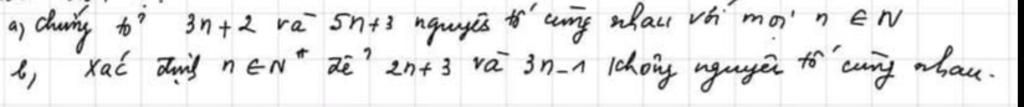 a) chứng tỏ 3n+2 và 5n+3 nguyên tố cùng nhau với mọi n ∈ N
b, Xác định n ∈ N* để 2n+3 và 3n-1 không nguyên tố cùng nhau.